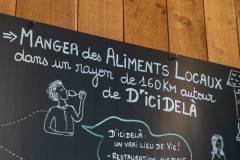 ⇒ MANGER des ALIMENTS LOCAUX
dans un rayon de 160 KM autour
de D'iciDELÀ
D'iciDELÀ:
UN VRAI LIEU DE VIE!
- RESTAURATION